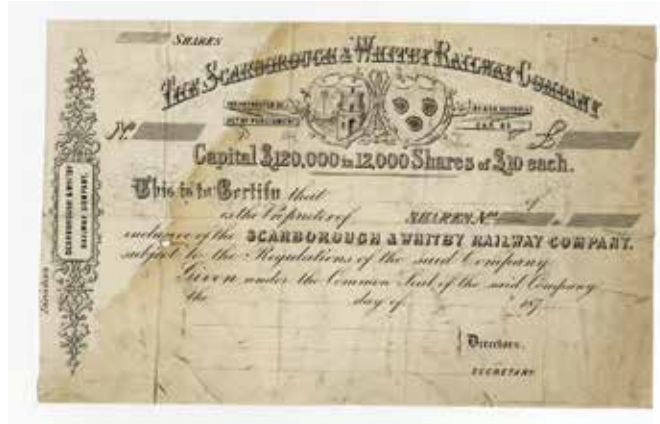 SHARES
THE SCARBOROUGH & WHITBY RAILWAY COMPANY
INCORPORATED BY
ACT OF PARLIAMENT
No. £
Capital £120,000 in 12,000 Shares of £10 each.
This is to Certify that of
is the Proprietor of SHARES No.
inclusive of the SCARBOROUGH & WHITBY RAILWAY COMPANY.
subject to the Regulations of the said Company
Given under the Common Seal of the said Company
the day of 187
Directors.
SECRETARY
SCARBOROUGH & WHITBY
RAILWAY COMPANY.